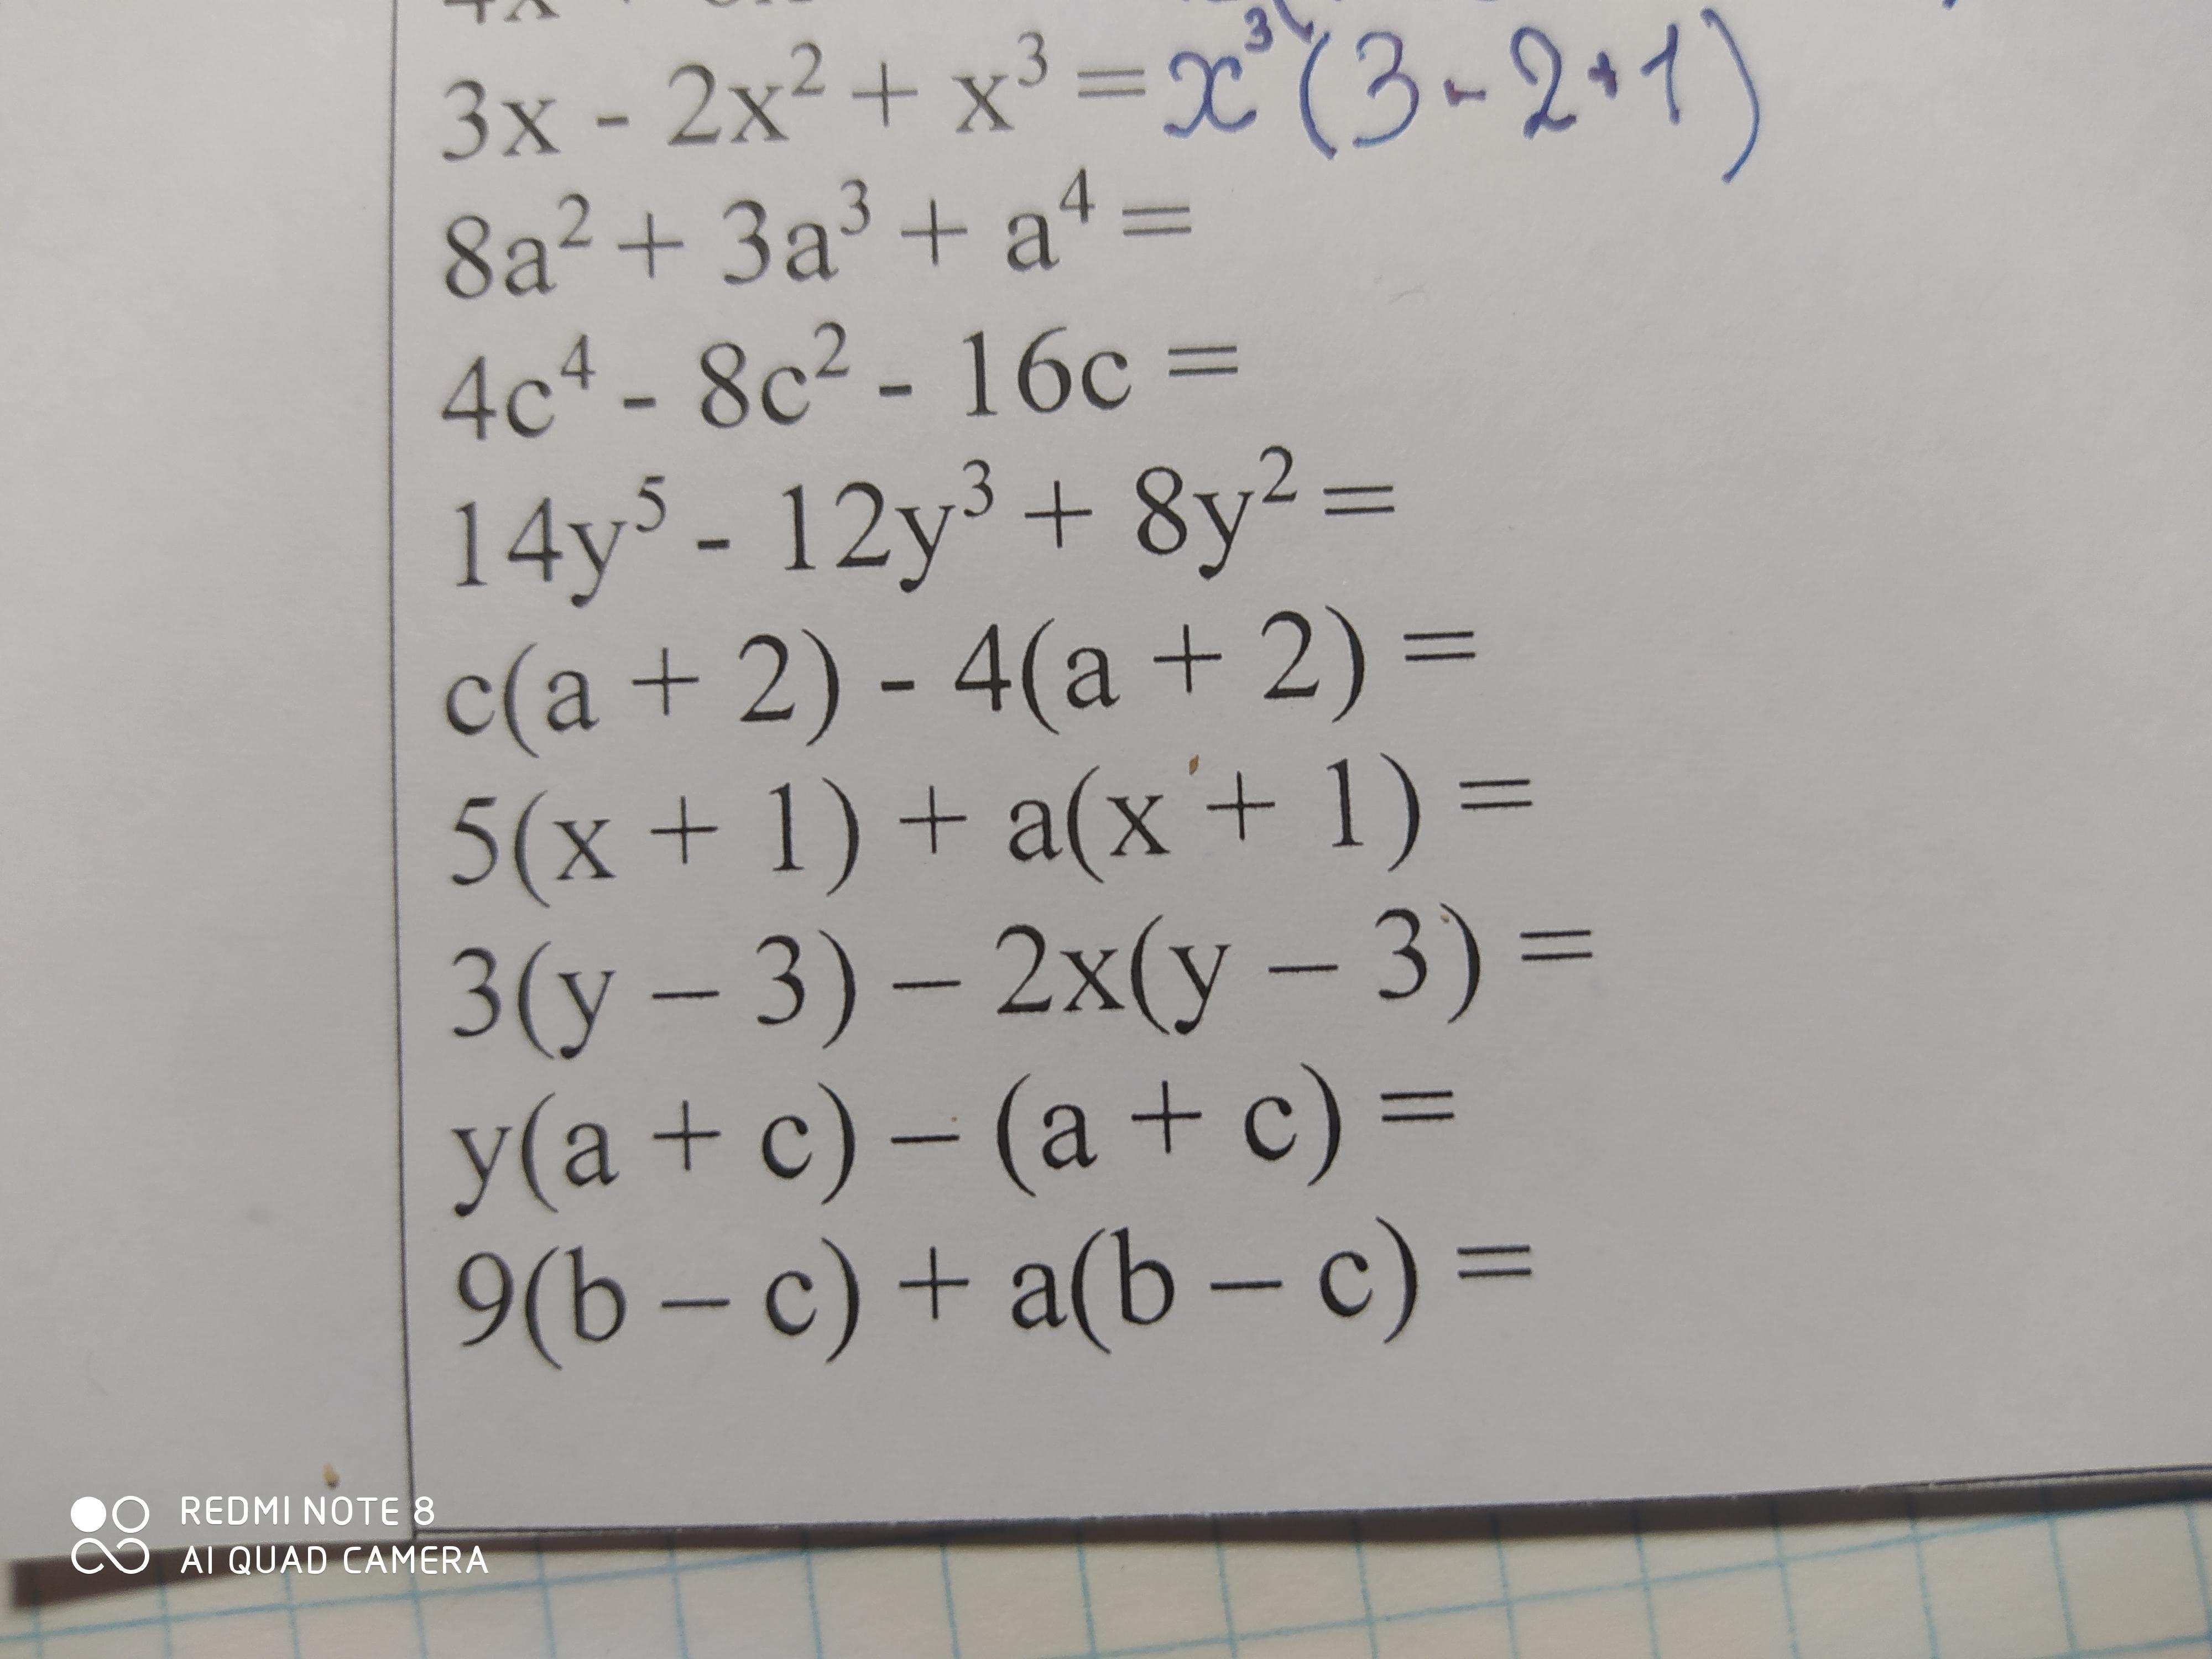 3x - 2x² + x³ = x³(3 - 2 + 1)
8a² + 3a³ + a⁴ =
4c⁴ - 8c² - 16c =
14y⁵ - 12y³ + 8y² =
c(a + 2) - 4(a + 2) =
5(x + 1) + a(x + 1) =
3(y – 3) – 2x(y – 3) =
y(a + c) – (a + c) =
9(b – c) + a(b – c) =
REDMI NOTE 8
AI QUAD CAMERA